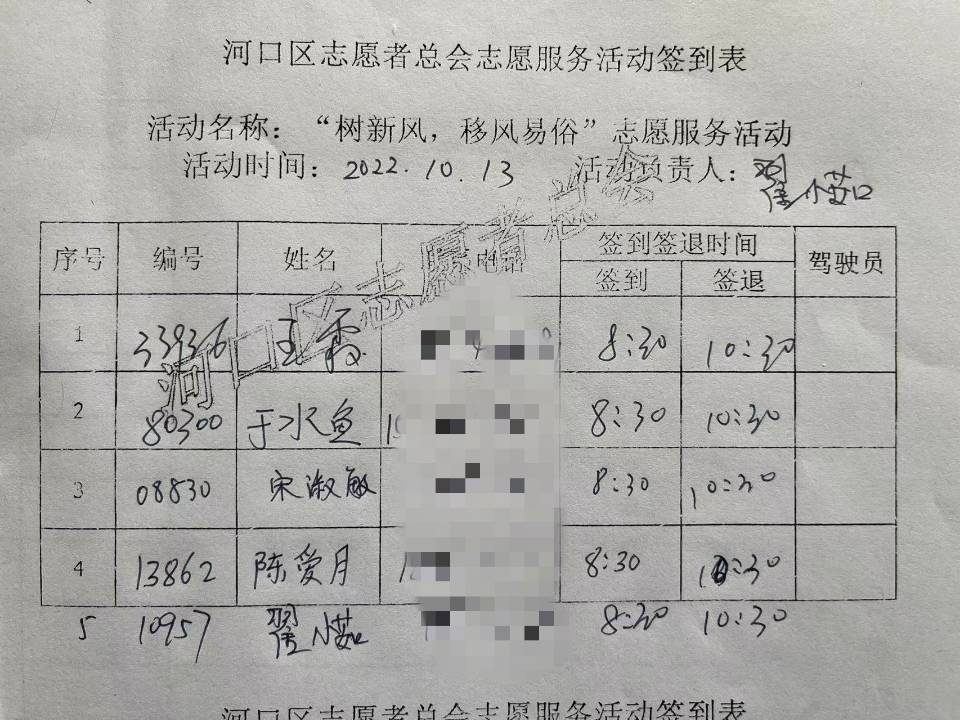 河口区志愿者总会志愿服务活动签到表
活动名称：“树新风，移风易俗”志愿服务活动
活动时间：2022.10.13 活动负责人：翟小茹
河口区志愿者总会
序号 编号 姓名 电话 签到签退时间 驾驶员
签到 签退
1 33936 王霞 8:30 10:30
2 80300 于水鱼 8:30 10:30
3 08830 宋淑敏 8:30 10:30
4 13862 陈爱月 8:30 10:30
5 10957 翟小茹 8:30 10:30
河口区志愿者总会志愿服务活动签到表